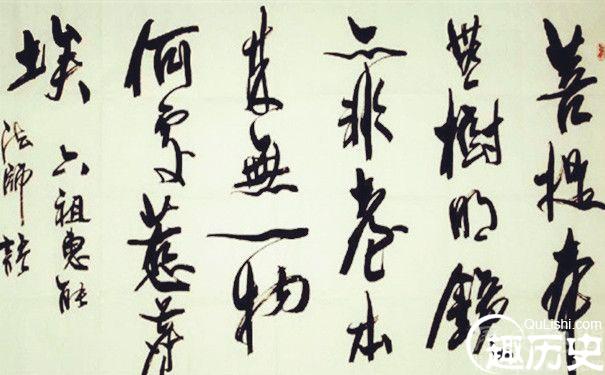 菩提本
無樹明鏡
亦非臺本
来無一物
何處惹塵
埃
六祖惠能
法師語
QuLishi.com
趣历史